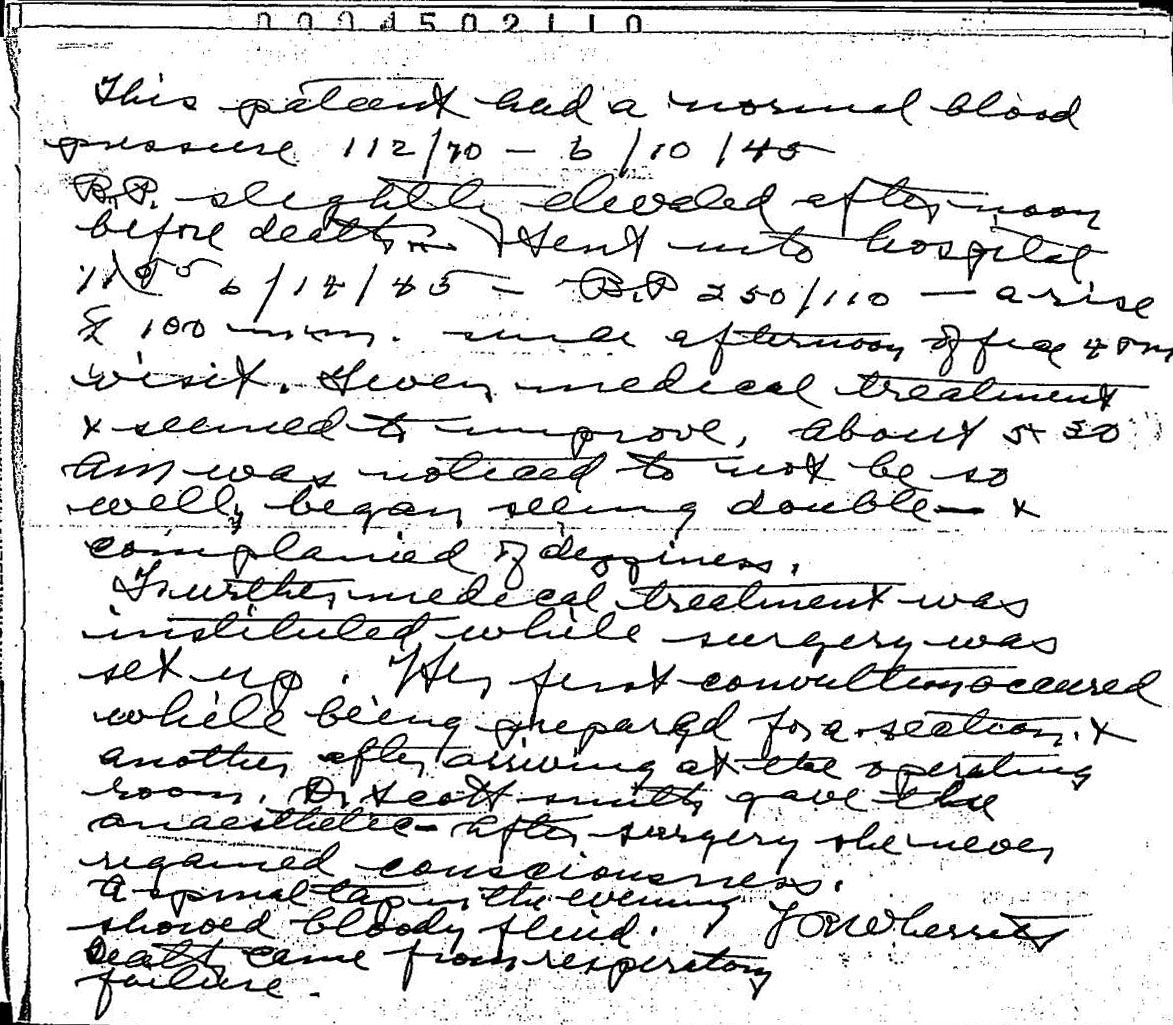 0004502110
This patient had a normal blood
pressure 112/70 - 6/10/45
B.P. slightly elevated afternoon
before death. Sent into hospital
6/14/45 - B.P 250/110 - a rise
100 mm. since afternoon office 4 Pm
visit. Given medical treatment
& seemed to improve. About 5 30
Am was noticed to not be so
well, began seeing double - &
complained of dizziness.
Further medical treatment was
instituted while surgery was
set up. Her first convultion occured
while being prepared for a section. &
another after arriving at the operating
room. Dr Scott Smith gave the
anaesthetic - after surgery she never
regained consciousness.
A spinal tap in the evening
showed bloody fluid.
Death came from respiratory
failure.